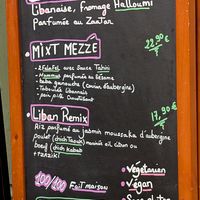 Libanaise, fromage Halloumi
Parfumée au Zaatar
MIXT MEZZE
22,90 €
- 2 Falafel avec sauce Tahini
- Hummus parfumé au sésame
- baba ganouche (caviar d'aubergine)
- Taboulés Libanais
- pain pita croustillant
Liban Remix
17,90 €
Riz parfumé au jasmin moussaka d'aubergine
poulet (chich Taouk) mariné ail citron ou
boeuf (chich Kebab)
+ tzatziki
100/100 Fait maison
- Végétarien
- Vegan
- Sans gluten